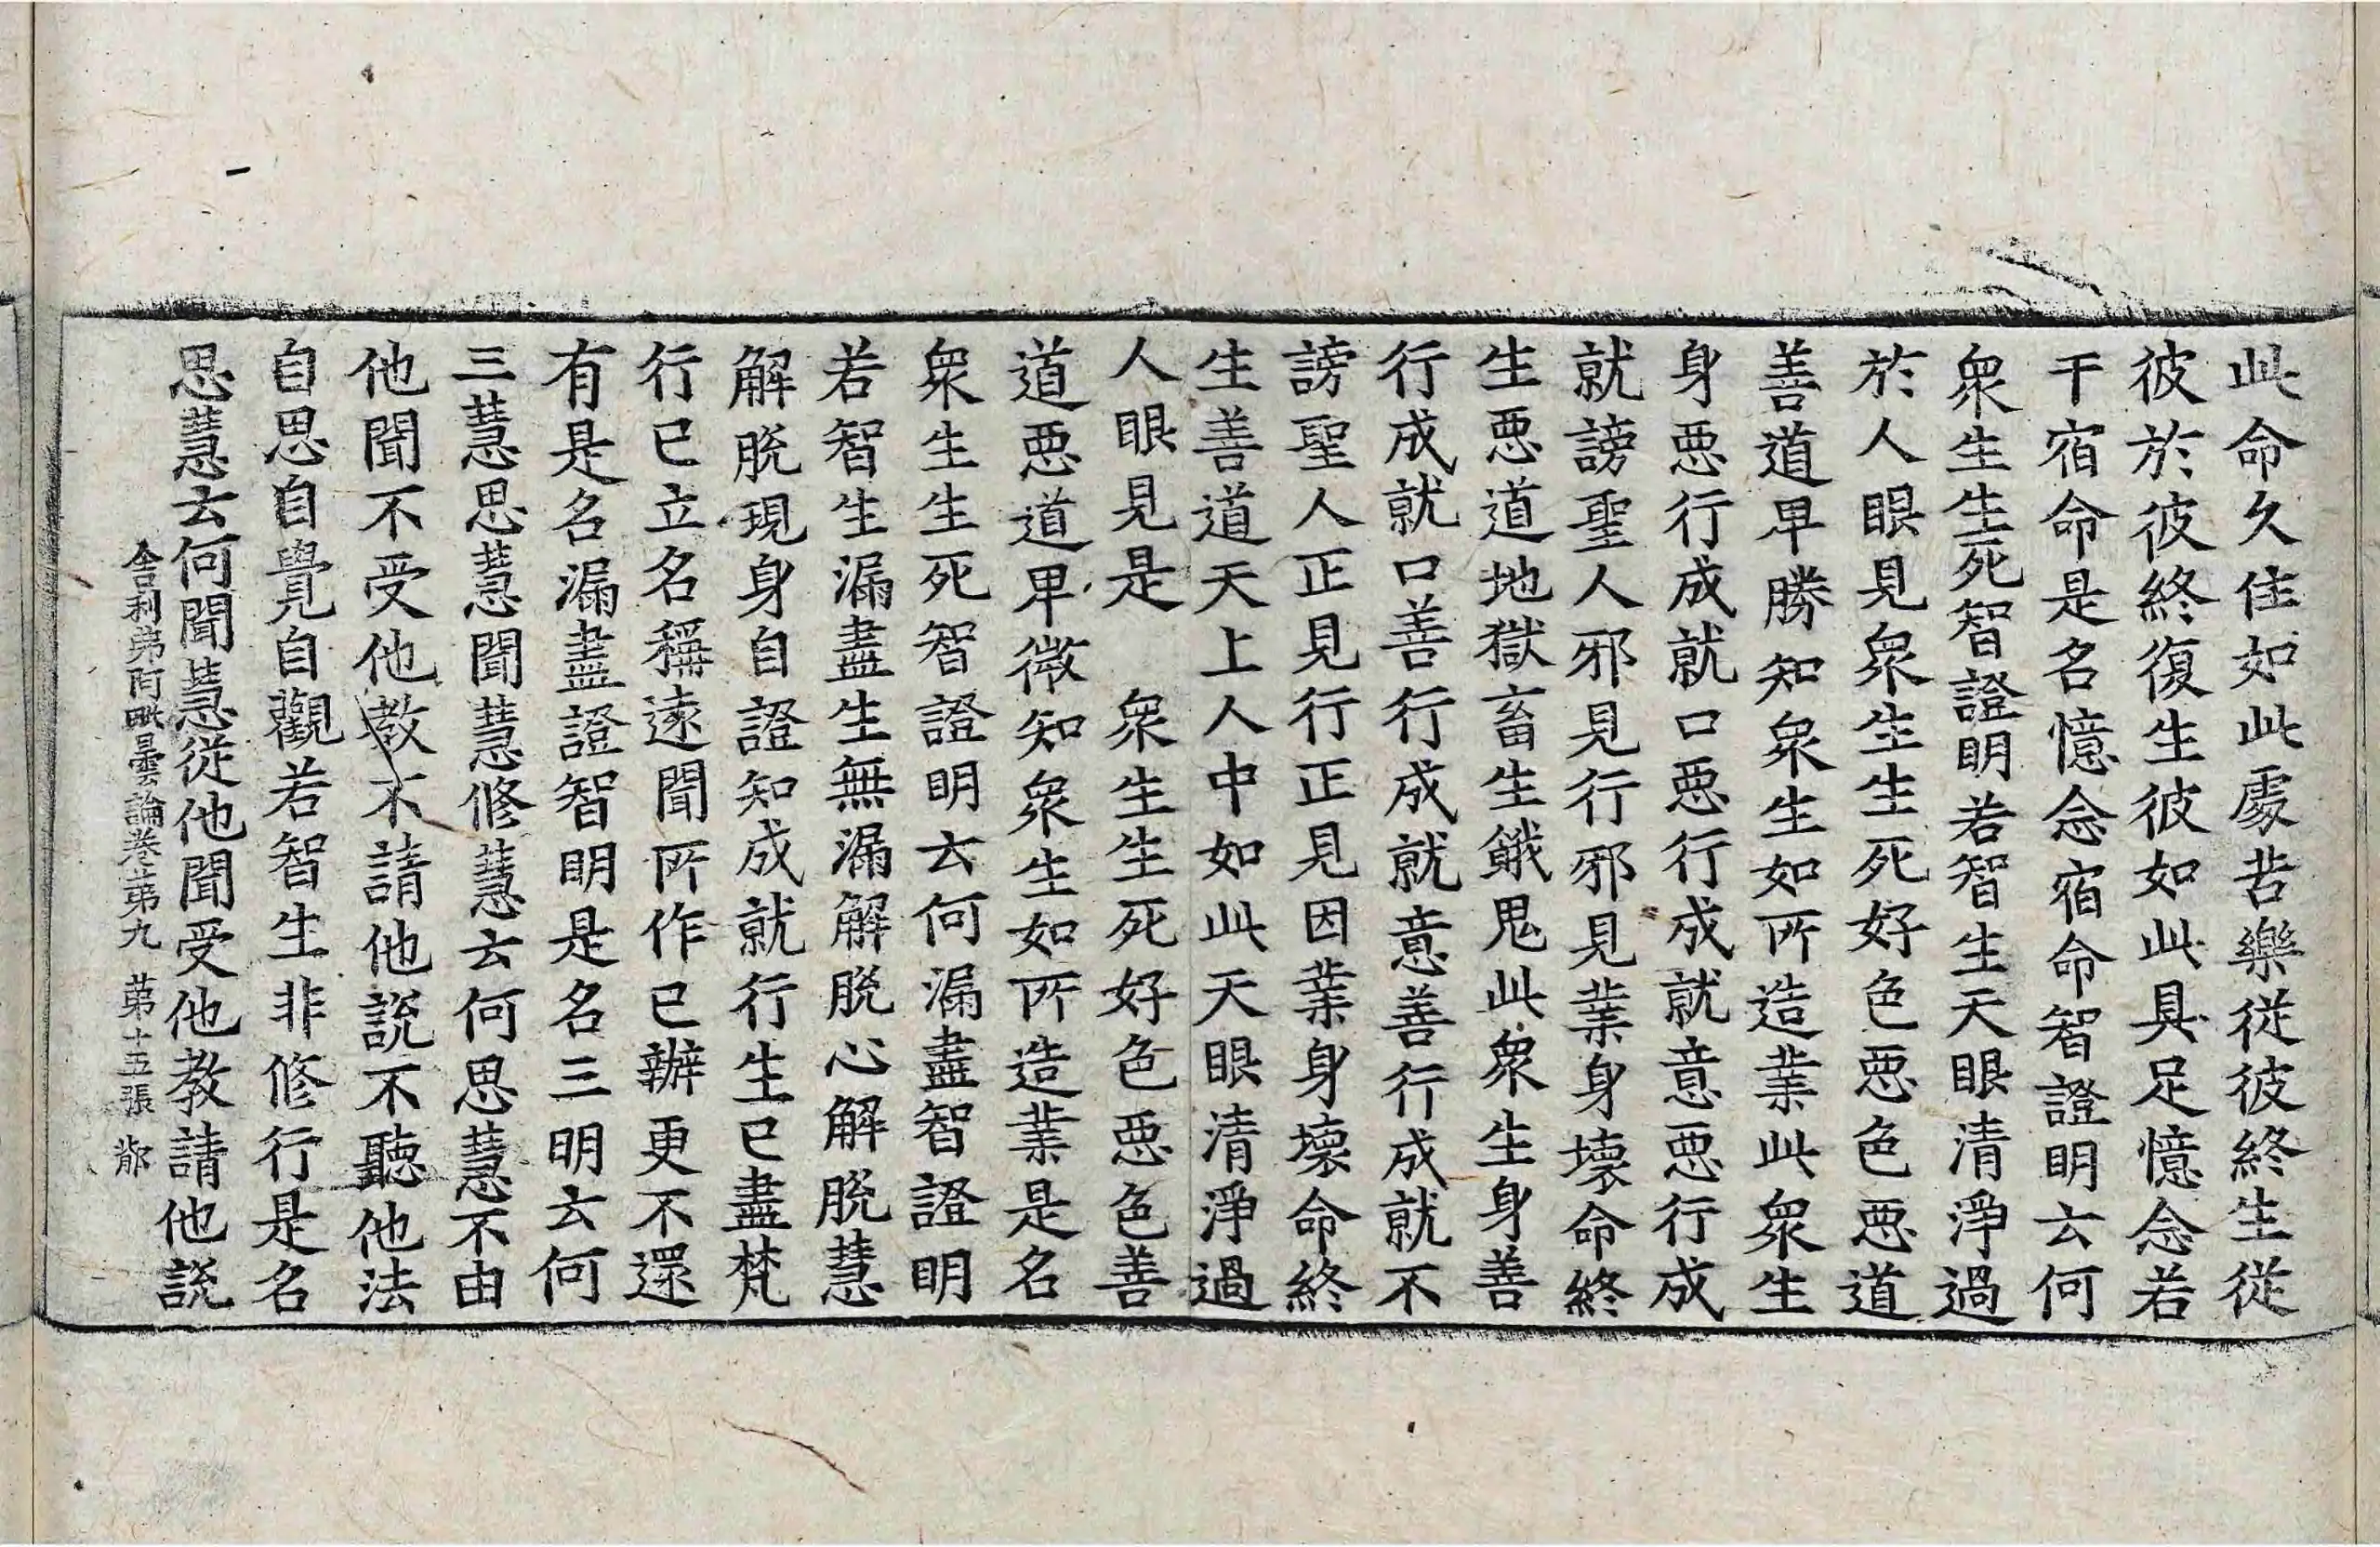 此命久住如此處苦樂從彼終生從
彼於彼終復生彼如此具足憶念若
干宿命是名憶念宿命智證明云何
衆生生死智證明若智生天眼清淨過
於人眼見衆生生死好色悪色悪道
善道早勝知衆生如所造業此衆生
身悪行成就口悪行成就意悪行成
就謗聖人邪見行邪見業身壞命終
生悪道地獄畜生餓鬼此衆生身善
行成就口善行成就意善行成就不
謗聖人正見行正見因業身壞命終
生善道天上人中如此天眼清淨過
人眼見是 衆生生死好色悪色善
道悪道卑微知衆生如所造業是名
衆生生死智證明云何漏盡智證明
若智生漏盡生無漏解脫心解脫慧
解脫現身自證知成就行生已盡梵
行已立名稱遠聞所作已辦更不還
有是名漏盡證智明是名三明云何
三慧思慧聞慧修慧云何思慧不由
他聞不受他教不請他說不聽他法
自思自覺自觀若智生非修行是名
思慧云何聞慧從他聞受他教請他說
舍利弗阿毗曇論卷第九 第十五張